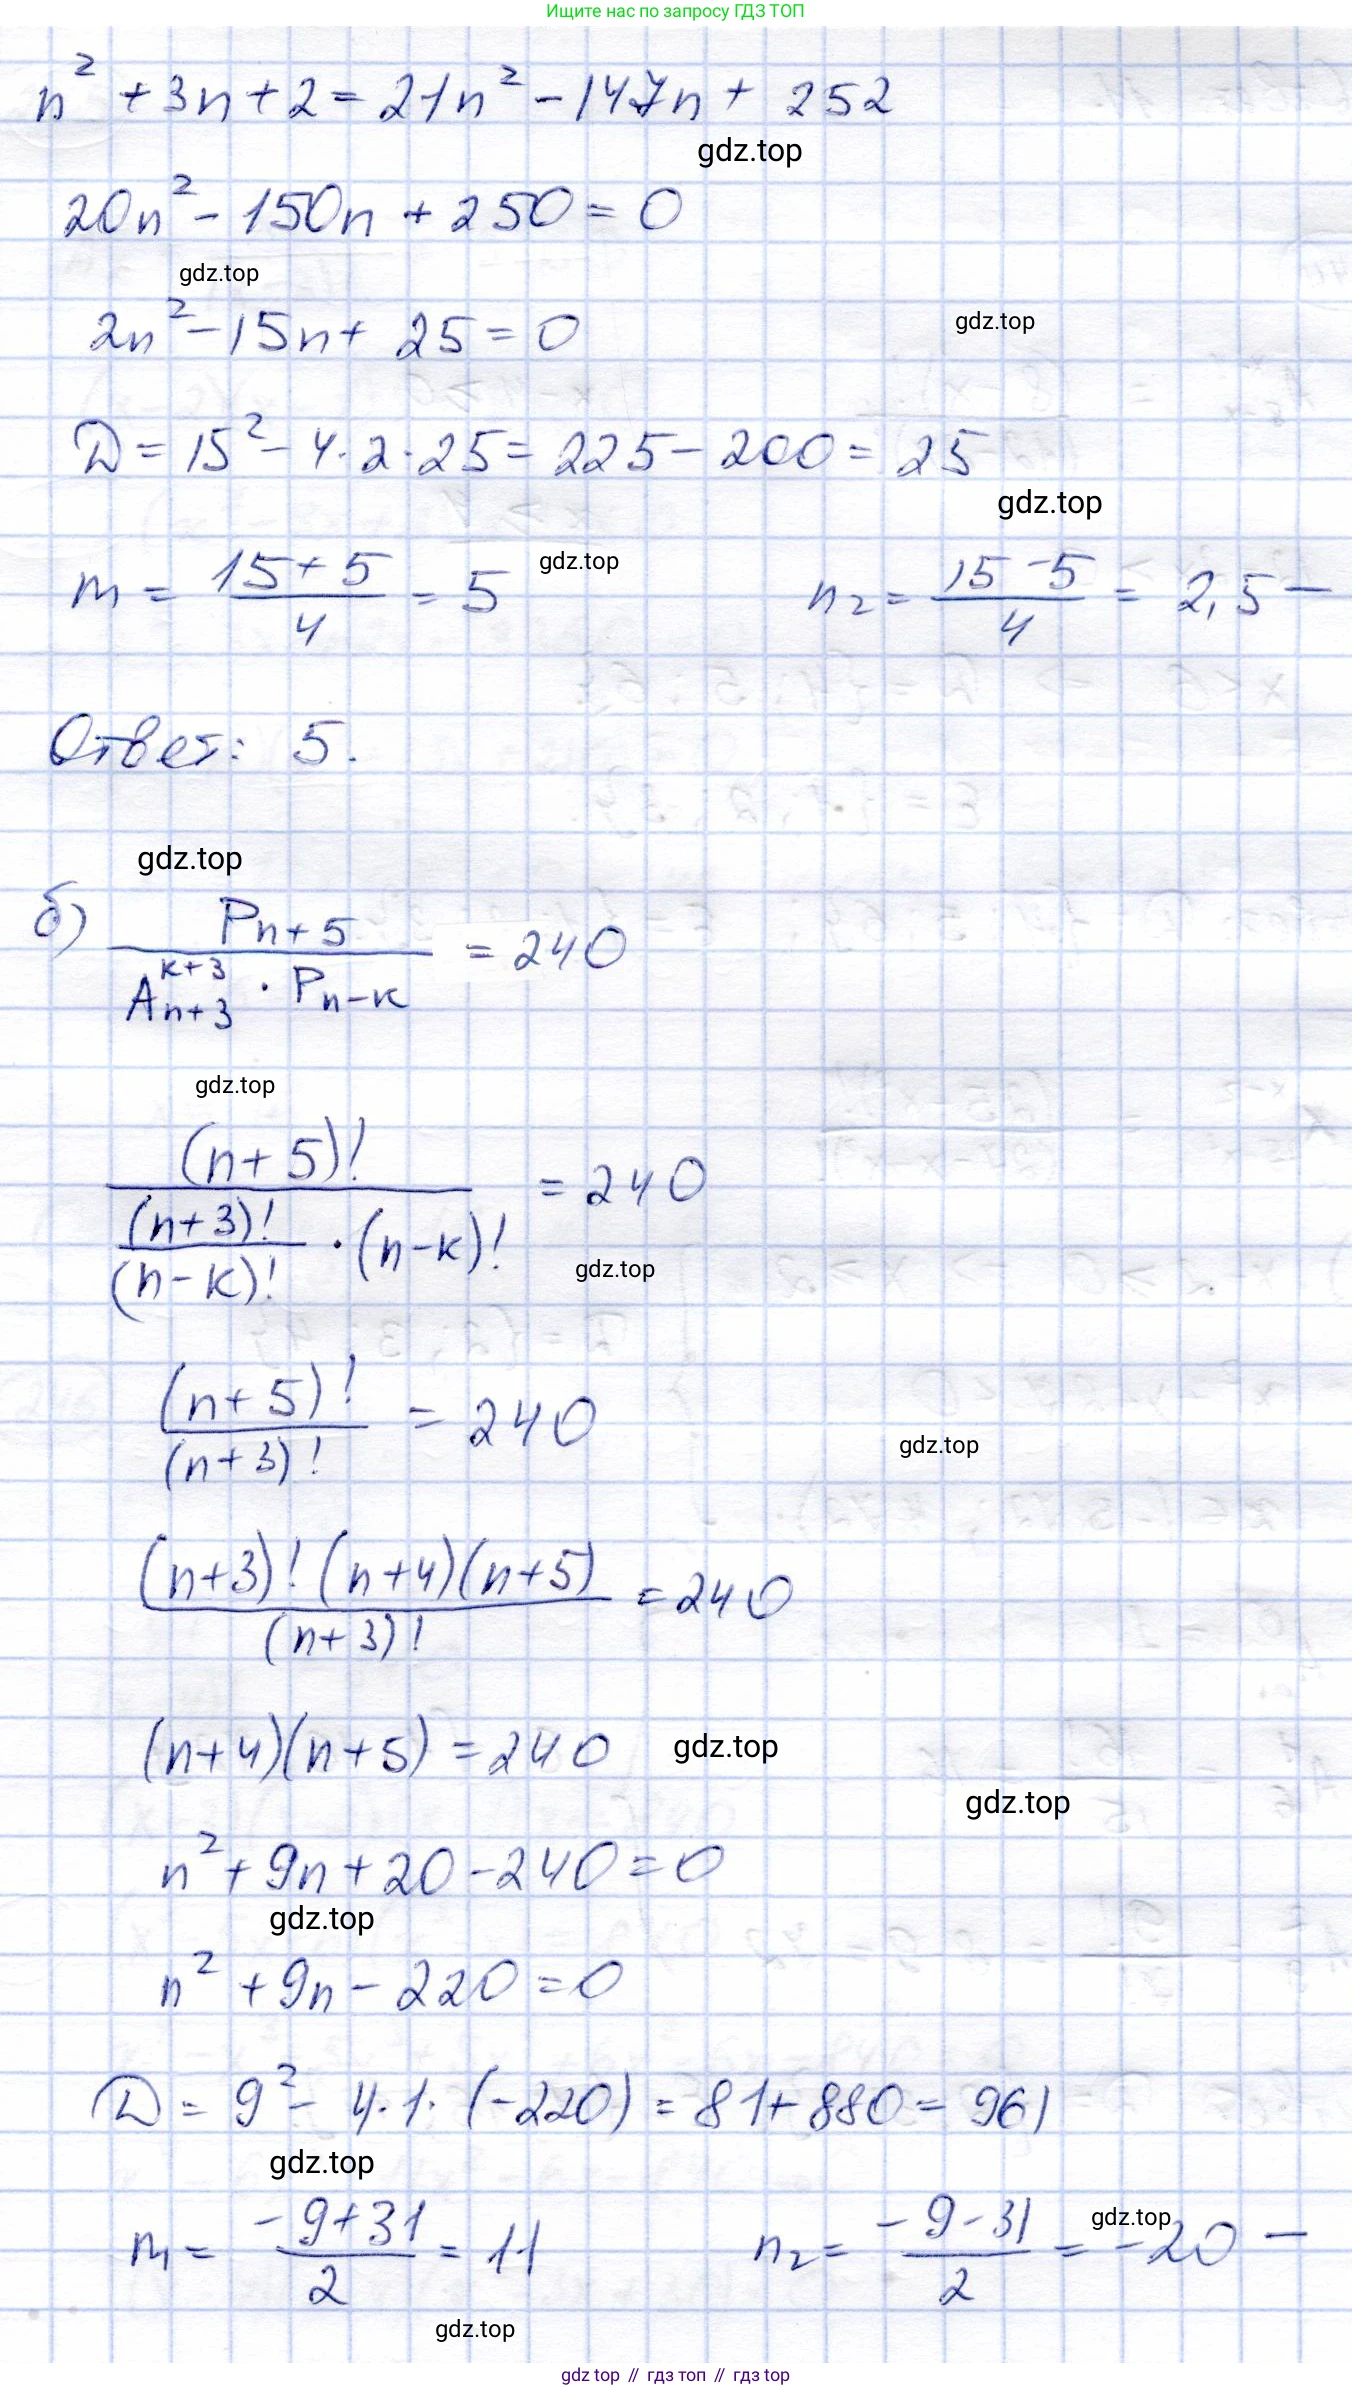 Ищите нас по запросу ГДЗ ТОП
n² + 3n + 2 = 21n² - 147n + 252
gdz.top
20n² - 150n + 250 = 0
gdz.top
2n² - 15n + 25 = 0
gdz.top
D = 15² - 4·2·25 = 225 - 200 = 25
gdz.top
n₁ = (15 + 5)/4 = 5 gdz.top n₂ = (15 - 5)/4 = 2,5 —
Ответ: 5.
gdz.top
б) P_{n+5} / (A_{n+3}^{k+3} · P_{n-k}) = 240
gdz.top
(n+5)! / ((n+3)!/(n-k)! · (n-k)!) = 240
gdz.top
(n+5)! / (n+3)! = 240
gdz.top
(n+3)! (n+4)(n+5) / (n+3)! = 240
(n+4)(n+5) = 240 gdz.top
gdz.top
n² + 9n + 20 - 240 = 0
gdz.top
n² + 9n - 220 = 0
D = 9² - 4·1·(-220) = 81 + 880 = 961
gdz.top
n₁ = (-9+31)/2 = 11 n₂ = (-9-31)/2 = -20 — gdz.top
gdz.top
gdz top // гдз топ // гдз top